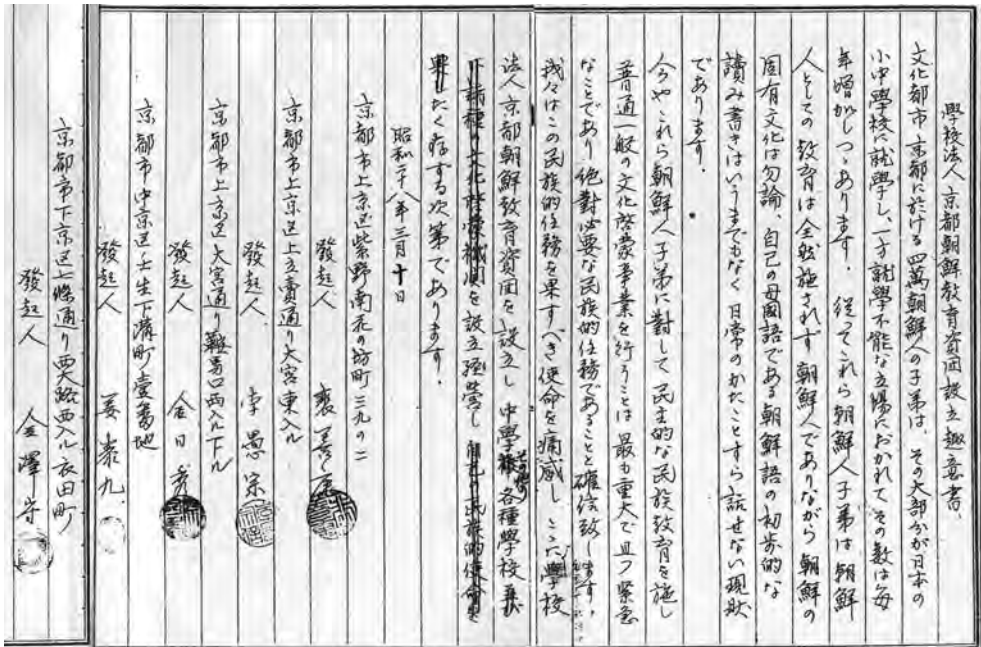 學校法人京都朝鮮教育資団設立趣意書、
文化都市京都に於ける四萬朝鮮人の子弟は、その大部分が日本の
小中學校に就學し、一部就學不能な立場におかれてその数は毎
年増加しつゝあります。従ってこれら朝鮮人子弟は朝鮮
人としての教育は全然施されず朝鮮人でありながら朝鮮の
固有文化は勿論、自己の母國語である朝鮮語の初歩的な
讀み書きはいうまでもなく日常のかたことすら話せない現状
であります。
今やこれら朝鮮人子弟に對して民主的な民族教育を施し
普通一般の文化啓蒙事業を行うことは最も重大で且つ緊急
なことであり絶對必要な民族的任務であることと確信致します。
我々はこの民族的任務を果すべき使命を痛感しここに學校
法人京都朝鮮教育資団を設立し中學校その他の各種學校
下諸種の文化啓蒙機関を設立経営し 民族的使命を
果したく存する次第であります。
昭和二十八年三月十日
京都市上京区紫野南花の坊町三九の二
發起人
京都市上京区上立賣通り大宮東入ル
發起人 李愚宗
京都市上京区大宮通り鞍馬口西入ル下ル
發起人 金日秀
京都市中京区壬生下溝町壹番地
發起人 姜 九
京都市下京区七條通り西大路西入ル衣田町
發起人 金澤守